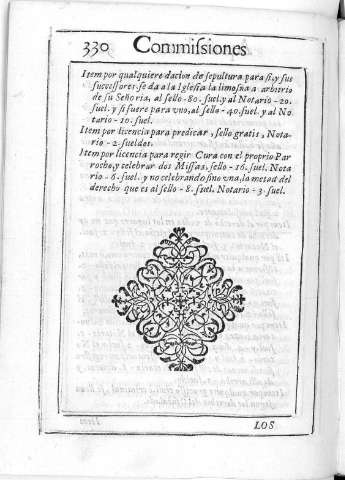 330 Commiſsiones
Item por qualquiere dacion de ſepultura para ſi, y ſus
ſucceſſores ſe da a la Igleſia la limoſna a arbitrio
de ſu Señoria, al ſello-80. ſuel. y al Notario-20.
ſuel. y ſi fuere para vno, al ſello-40. ſuel. y al No
tario-10. ſuel.
Item por licencia para predicar, ſello gratis, Nota-
rio-2. ſueldos.
Item por licencia para regir Cura con el proprio Par
rocho, y celebrar dos Miſſas, ſello-16. ſuel. Nota
rio-6. ſuel. y no celebrando ſino vna, la metad del
derecho que es al ſello-8. ſuel. Notario-3. ſuel.
LOS